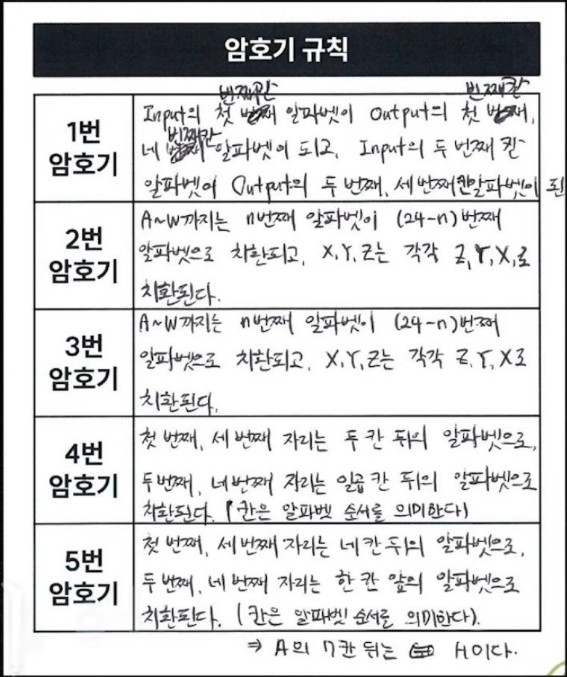 암호기 규칙
번째칸 번째칸
1번
암호기
Input의 첫 알파벳이 Output의 첫
번째칸
네 알파벳이 되고, Input의 두 번째 칸
알파벳이 Output의 두 번째, 세 번째 칸 알파벳이 된
2번
암호기
A~W까지는 n번째 알파벳이 (24-n)번째
알파벳으로 치환되고, X,Y,Z는 각각 Z,Y,X,로
치환된다.
3번
암호기
A~W까지는 n번째 알파벳이 (24-n)번째
알파벳으로 치환되고, X,Y,Z는 각각 Z,Y,X로
치환된다.
4번
암호기
첫 번째, 세 번째 자리는 두 칸 뒤의 알파벳으로,
두번째, 네 번째 자리는 일곱 칸 뒤의 알파벳으로
치환된다. (칸은 알파벳 순서를 의미한다)
5번
암호기
첫 번째, 세 번째 자리는 네 칸 뒤의 알파벳으로,
두 번째, 네 번째 자리는 한 칸 앞의 알파벳으로
치환된다. (칸은 알파벳 순서를 의미한다).
⇒ A의 7칸 뒤는 H이다.